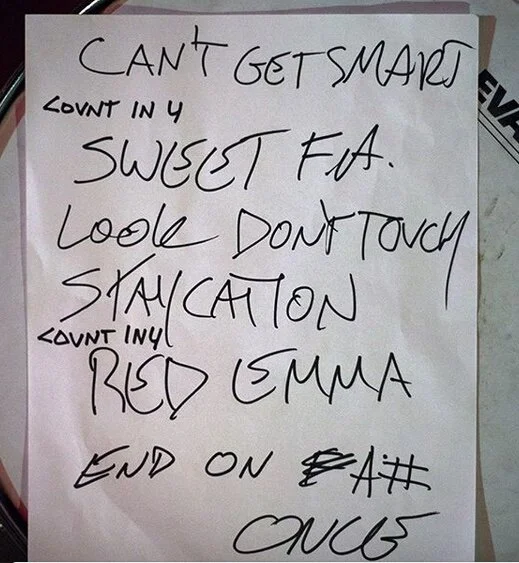 CAN'T GET SMART
COUNT IN 4
SWEET F.A.
LOOK DON'T TOUCH
STAYCATION
COUNT IN 4
RED EMMA
END ON A#
ONCE
EVA